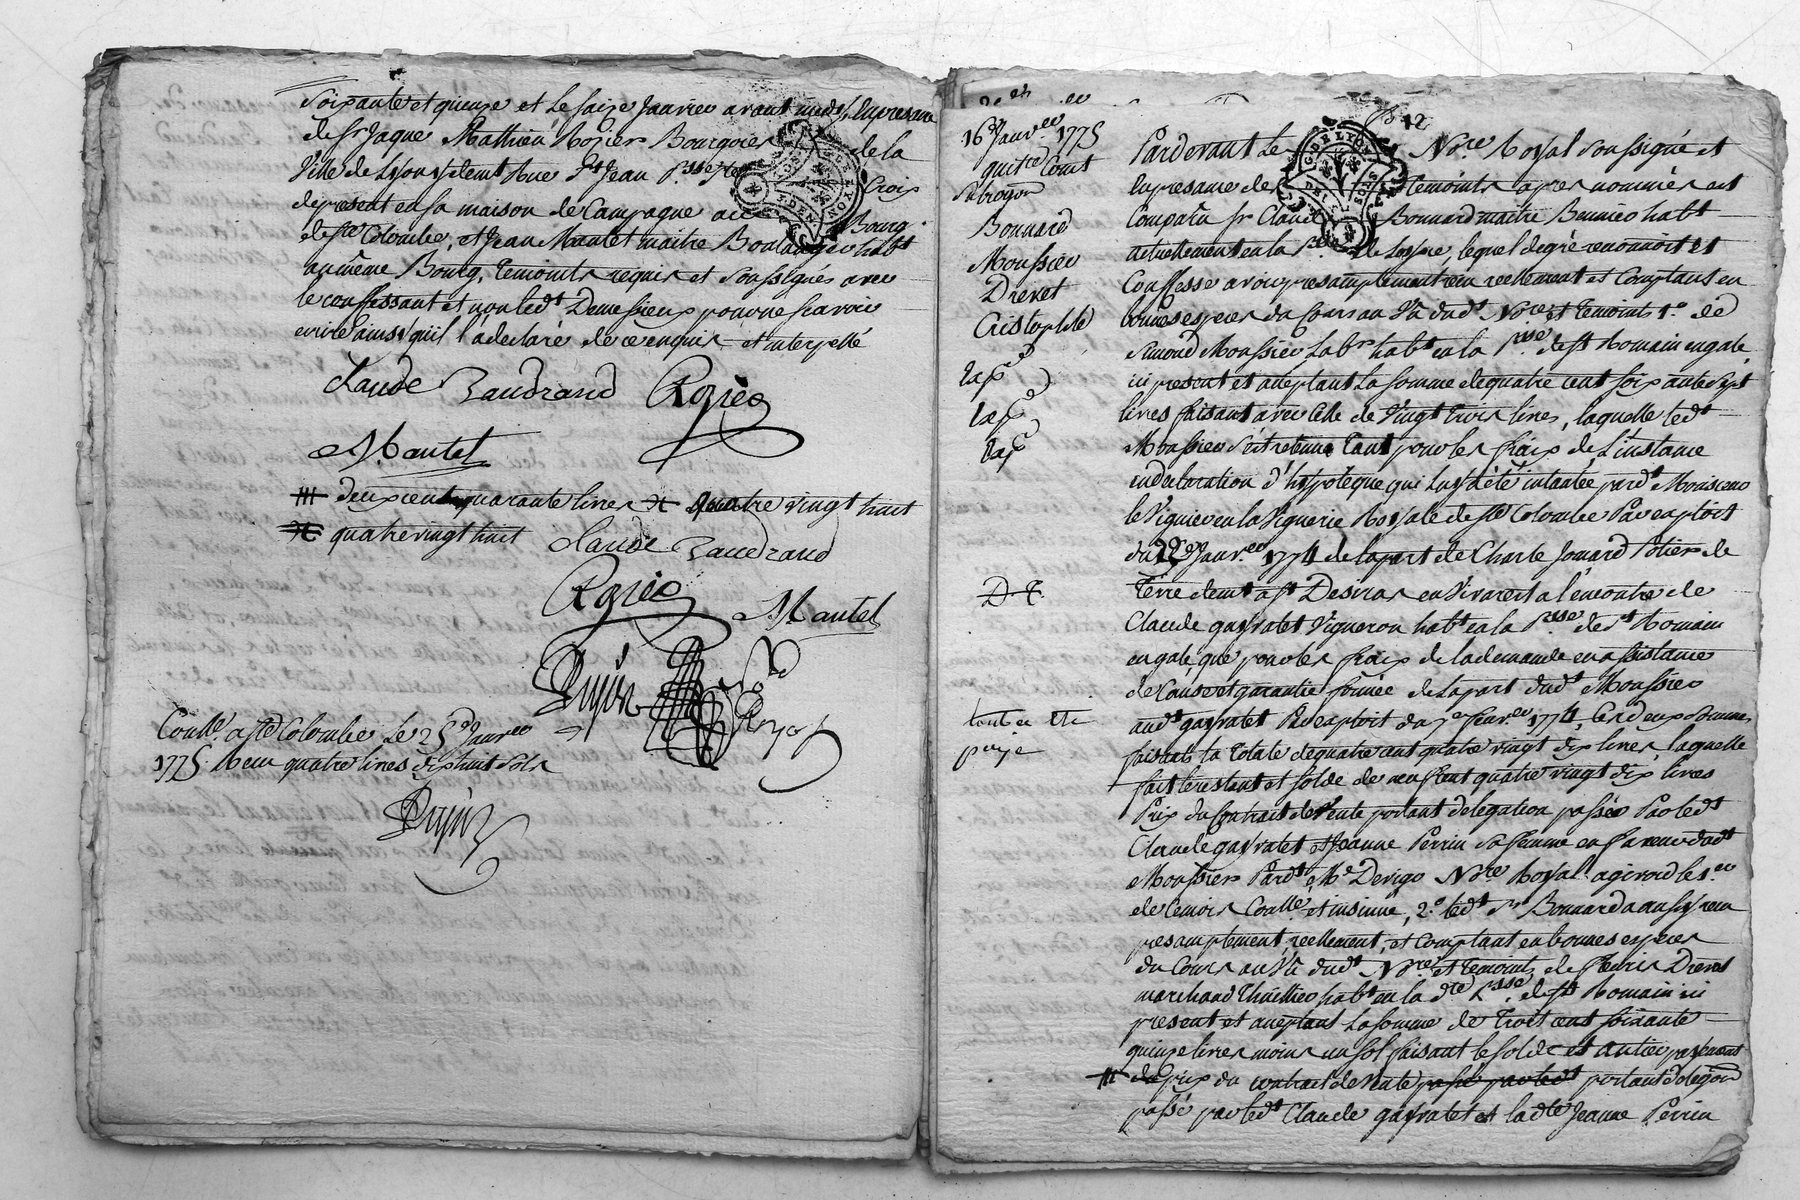 Soixante et quinze et le saize Janvier avant midy, En presence
de Sr Jaque Mathieu Rozier Bourgois de la
Ville de Lyon y demt Rue St Jean Psse Ste Croix
de present en sa maison de Campagne au Bourg
de Ste Colombe, et Jean Mantet maitre Boulanger habt
au même Bourg, temoints requis et soussignés avec
le confessant et non ledt Demessieux pour ne scavoir
ecrire ainsi qu'il l'a declaré de ce enquis et interpellé
Claude Baudrand Rozier
J Mantet
deux cent quarante livres quatre vingt huit
quatre vingt huit Claude Baudrand
Rozier
J Mantet
Dujon
Nre Royal
Conllé a Ste Colombe le 25e Janver
1775 Recu quatre livres dix huit sols
Dujon
12
16e Janver 1775
quitce Comt
Subrogon
Bonnard
Moussier
Drevet
Cristophle
Exp
Exp
Exp
Pardevant le Nore Royal soussigné et
En presance des temoints apres nommés est
Comparu sr Claude Bonnard maitre habt
actuellement en la de Loyre, lequel de gré reconnoit et
Confesse avoir presamptement recu reellement et Comptant en
bonnes especes du Cours au Vû dudt Nore et temoints, 1.° de
Simond Moussier Labr habt en la Psse de St Romain en gale
ici present et aceptant La somme de quatre cent soixante sept
livres faisant avec Celle de Vingt trois livres, laquelle ledt
Moussier s'est retenue tant pour les fraix de L'instance
en declaration d'hypoteque qui Luy a été intantée pardt Monsieur
le Viguier en la Viguerie Royale de Ste Colombe Par exploit
du 22e Janver 1774 de la part de Charle Jomard Potier de
Terre demt a St Desirat en Vivarest a l'encontre de
Claude gayratet Vigneron habt en la Psse de St Romain
en gale que pour les fraix de la demande en assistance
de Cause et garantie formée de la part dudt Moussier
audt gayratet Par exploit du 7e fevrer 1774, Les deux sommes
faisant la totale de quatre cent quatre vingt dix livres laquelle
fait le restant et solde de neuf cent quatre vingt dix livres
Prix du Contrat de Vente portant delegation passée Par ledt
Claude gayratet et Jeanne Perrin sa femme en faveur dudt
Moussier Pardt Me Dervigo Nore Royal
Conllé et insinué, 2.° ledt sr Bonnard a aussy recu
presamptement, reellement, et Comptant en bonnes especes
du Cours au Vû dudt Nore et temoints, de Drevet
marchand habt en la dte Psse de St Romain ici
present et aceptant La somme de trois cent soixante
quinze livres moins un sol faisant le solde et entier payement
du prix du contrat de Vente passé par ledt portant delegon
passé par ledt Claude gayratet et la dte Jeanne Perrin